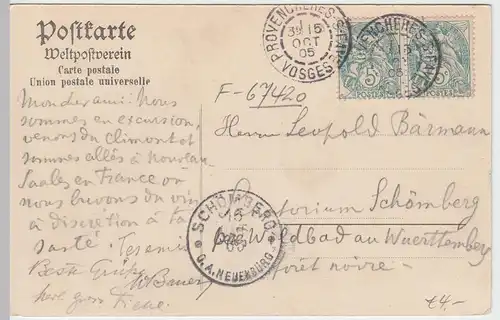 Postkarte
Weltpostverein
Carte postale
Union postale universelle
PROVENCHERES-S-FAVE
15
OCT
05
VOSGES
5c
5c
F-67420
Mon cher ami: Nous
sommes en excursion,
venons du Climont et
sommes allés à Nouveau-
Saales en France où
nous buvons du vin
à discrétion à ta
santé.
Beste Grüße
W Bauer
Herrn Leopold Bärmann
Sanatorium Schömberg
bei Wildbad au Wuerttemberg
Forêt noire
SCHÖMBERG
16
O.A. NEUENBÜRG
€4.-